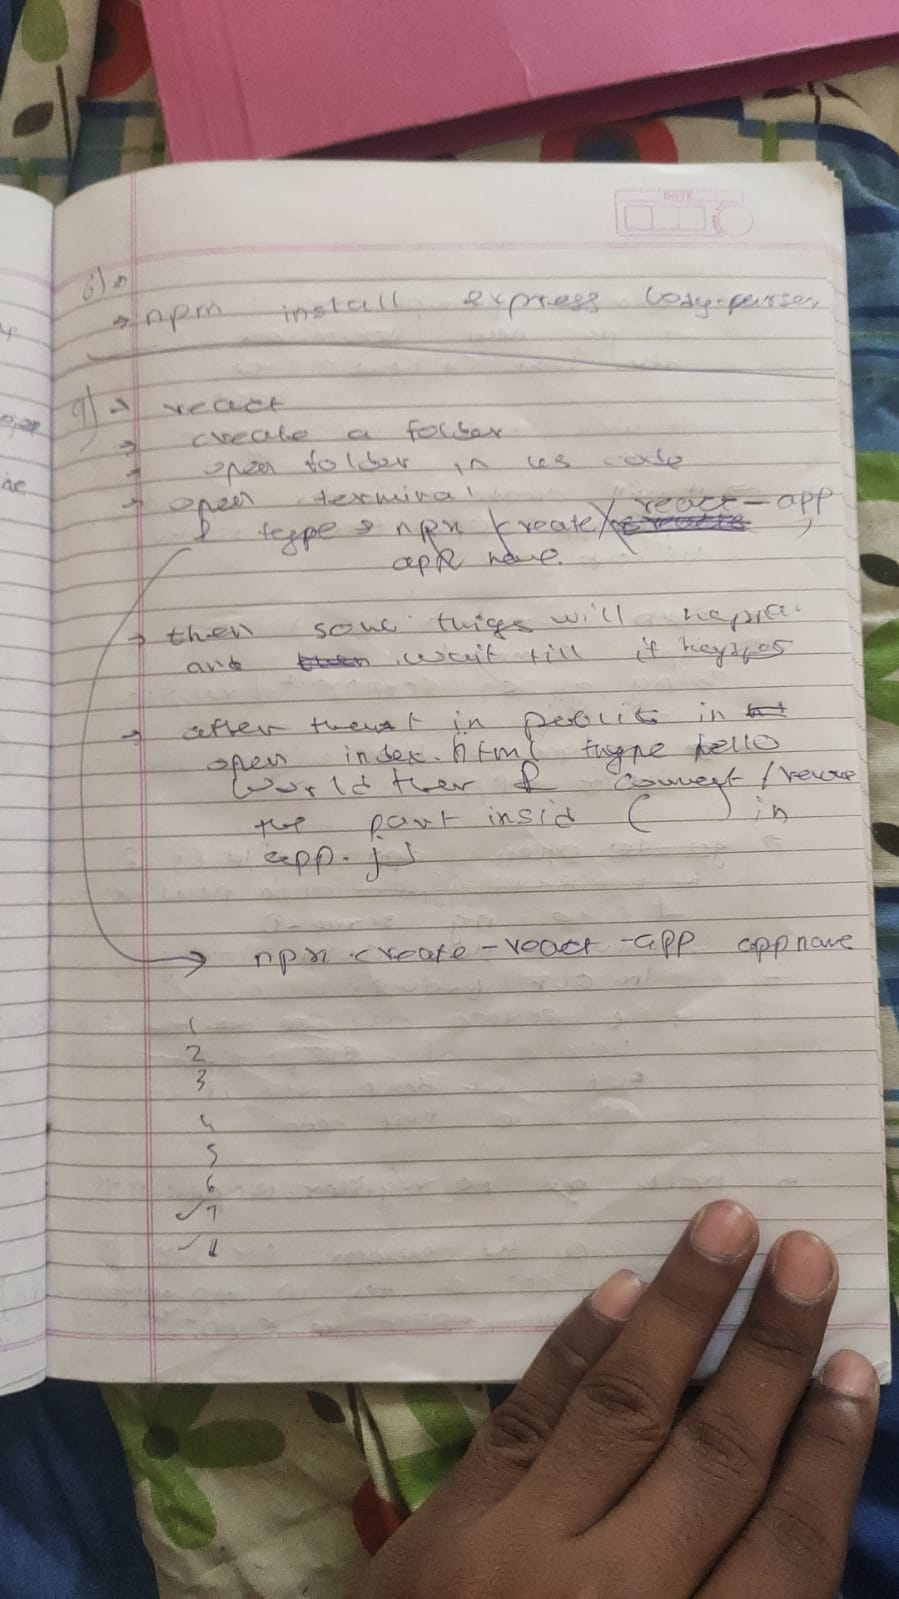 DATE
6)
→ npm install express body-parser
9) → react
→ create a folder
→ open folder in vs code
→ open terminal
& type → npx create react-app
app name.
→ then some thigs will
and wait till it
→ after in public in
open index.html type hello
World then & convert /
the part insid ( ) in
app.js
→ npx create-react-app appname
1
2
3
4
5
6
✓ 7